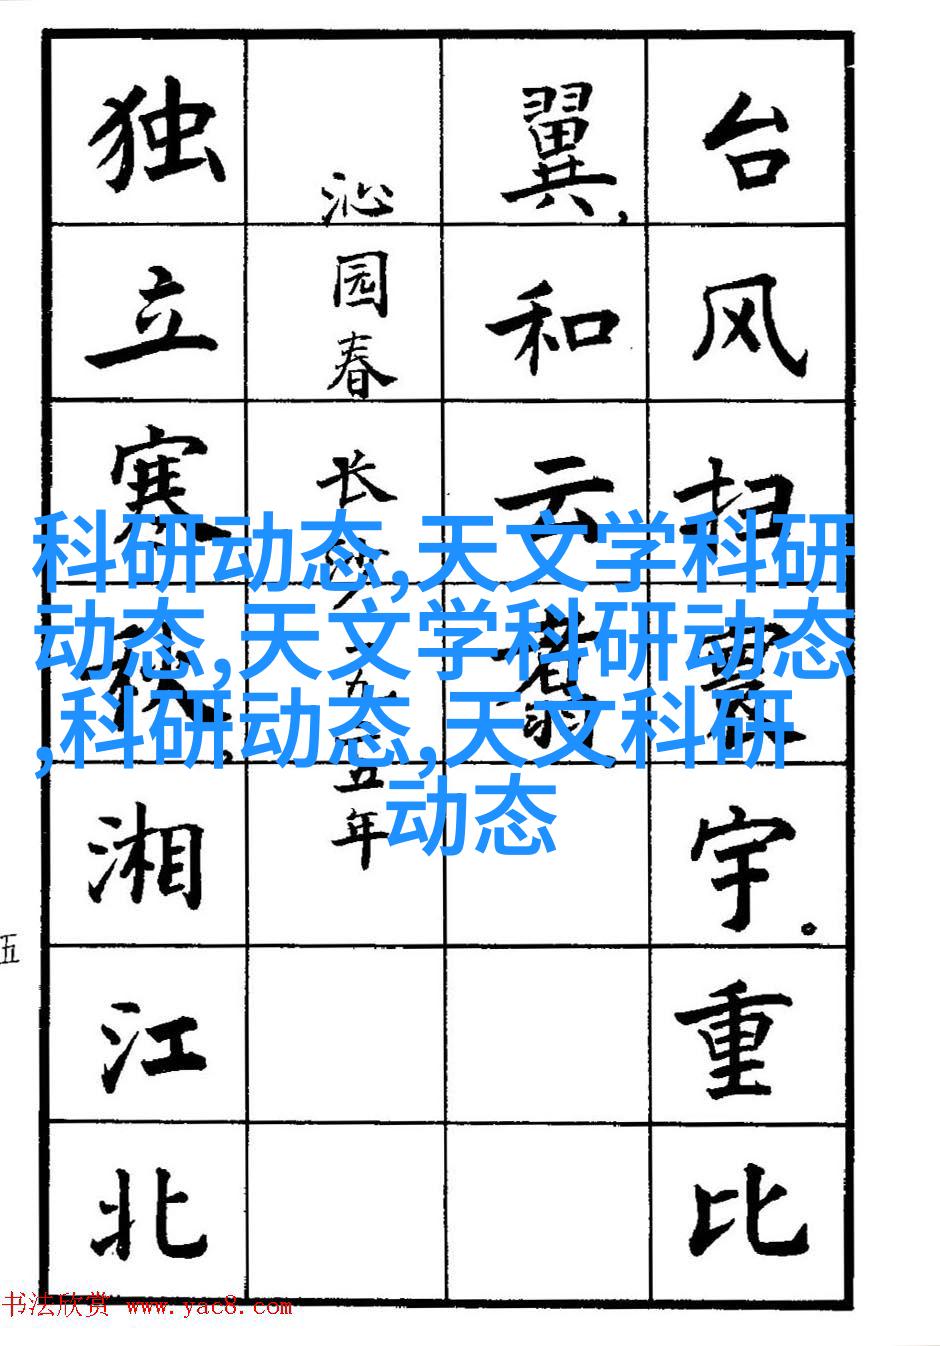 台风扫寰宇。重比
翼,和云翥。
沁园春 长沙 一九二五年
独立寒秋,湘江北
五
科研动态,天文学科研
动态,天文学科研动态
,科研动态,天文科研
动态
书法欣赏 www.yac8.com